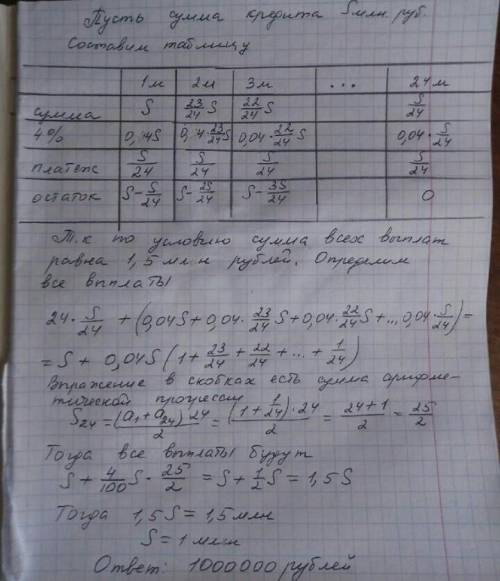 Пусть сумма кредита S млн. руб.
Составим таблицу
1м 2м 3м ... 24м
сумма S 23/24 S 22/24 S S/24
4% 0,4S 0,4·23/24 S 0,04·22/24 S 0,04·S/24
платеж S/24 S/24 S/24 S/24
остаток S-S/24 S-2S/24 S-3S/24 0
Т.к по условию сумма всех выплат
равна 1,5 млн рублей. Определим
все выплаты
24·S/24 + (0,04S+0,04·23/24 S+0,04·22/24 S+...0,04·S/24)=
= S + 0,04S (1+23/24+22/24+...+1/24)
Выражение в скобках есть сумма арифме-
тической процессии
S24=(a1+a24)·24/2=(1+1/24)·24/2=24+1/2=25/2
Тогда все выплаты будут
S+4/100 S·25/2=S+1/2 S=1,5S
Тогда 1,5S=1,5млн
S=1млн
Ответ: 1000000 рублей